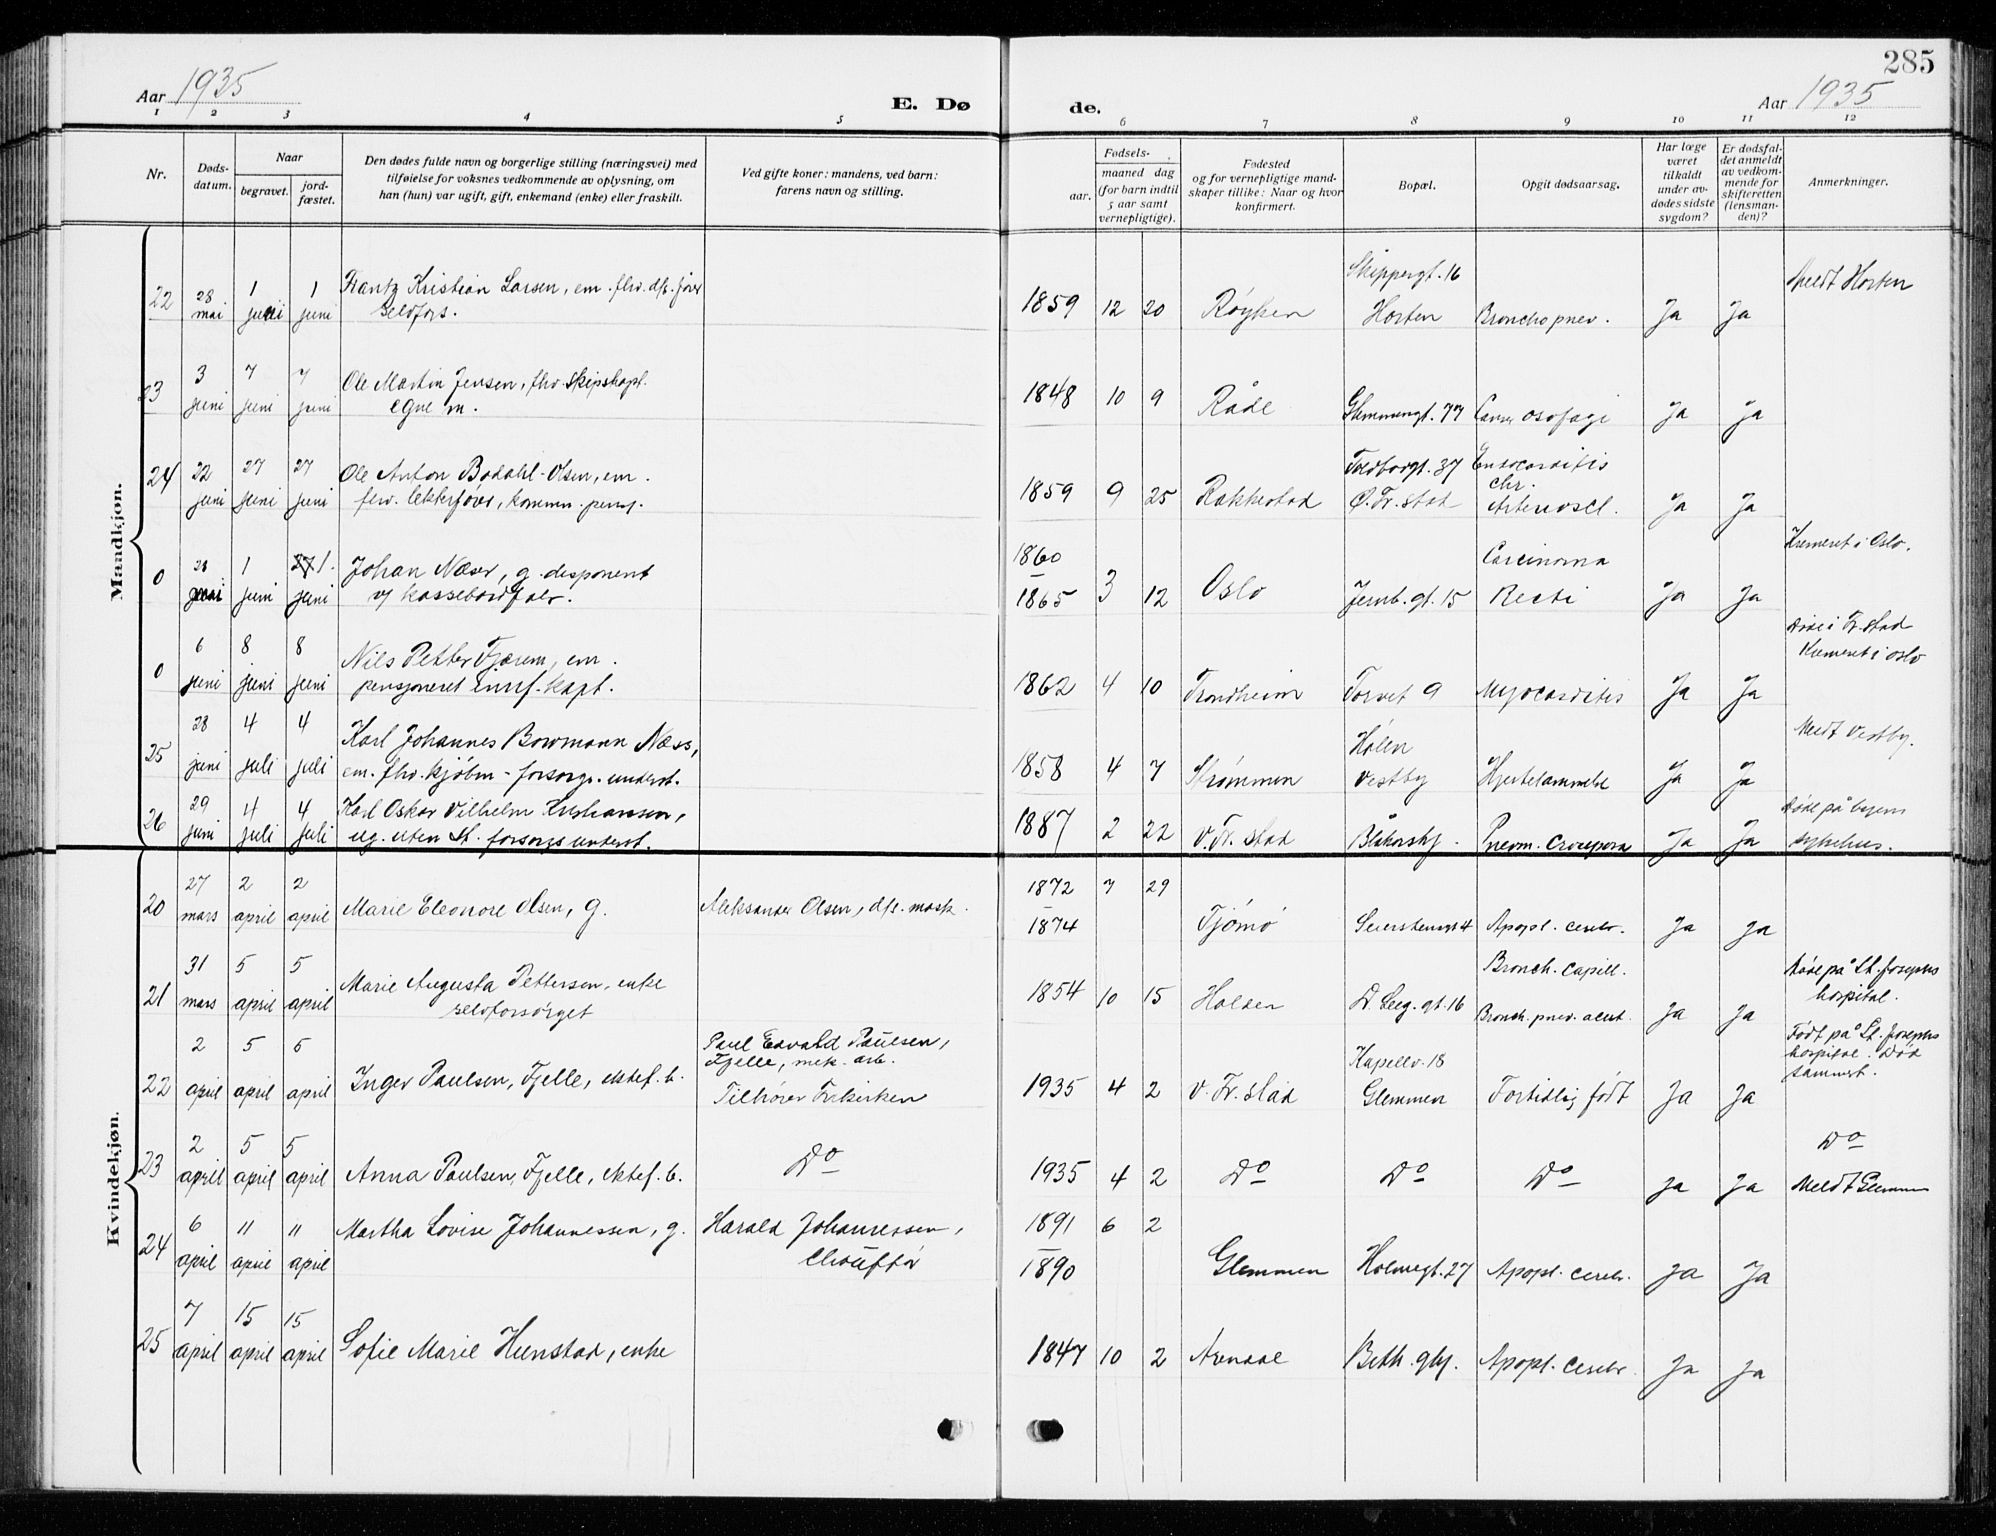 285
Aar 1935
E. Dø
de.
Aar 1935
1 2 3 4 5 6 7 8 9 10 11 12
Nr.
Døds-
datum.
Naar
begravet.
jord-
fæstet.
Den dødes fulde navn og borgerlige stilling (næringsvei) med
tilføielse for voksnes vedkommende av oplysning, om
han (hun) var ugift, gift, enkemand (enke) eller fraskilt.
Ved gifte koner: mandens, ved barn:
farens navn og stilling.
Fødsels-
aar.
maaned dag
(for barn indtil
5 aar samt
vernepligtige).
Fødested
og for vernepligtige mand-
skaper tillike: Naar og hvor
konfirmert.
Bopæl.
Opgit dødsaarsag.
Har læge
været
tilkaldt
under av-
dødes sidste
sygdom?
Er dødsfal-
det anmeldt
av vedkom-
mende for
skifteretten
(lensman-
den)?
Anmerkninger.
Mandkjøn.
Skippergt. 16
Meldt Horten
22 28 mai 1 juni 1 juni Frantz Kristian Larsen, em. fhv. dfs. fører
selvfors.
1859 12 20 Røyken Horten Bronchopnev. Ja Ja
23 3 juni 7 juni 7 juni Ole Martin Jensen, fhv. skipskapt.
egne m.
1848 10 9 Råde Glemmengt. 77 Cancer osofagi Ja Ja
24 22 juni 27 juni 27 juni Ole Anton Bødahl-Olsen, em.
fhv. lekterfører, kommun. pens.
1859 9 25 Rakkestad Toldbodgt. 37 Ø. Fr.stad Endocarditis
chr.
Arterioscl. Ja Ja
0 28 1 juni 1. juni Johan Næser, g. disponent
v/
1860
1865 3 12 Oslo Jernb.gt. 15 Carcinoma
Recti Ja Ja Kremert i Oslo.
0 6 juni 8 juni 8 juni Nils Petter Fjærem, em.
pensjoneret kapt.
1862 4 10 Trondheim Torvet 9 Myocarditis Ja Ja Døde i Fr.stad
Kremert i Oslo
25 28 juni 4 juli 4 juli Karl Johannes Bowmann Næss,
em. fhv. kjøbm. - forsorgs. underst.
1858 4 7 Strømmen Hølen
Vestby Hjertelammelse Ja Ja Meldt Vestby.
26 29 juni 4 juli 4 juli Karl Oskar Vilhelm Kristiansen,
ug. uten st. forsorgsunderst.
1887 2 22 V. Fr. stad Blåkorshj. Pnevm. crouposa Ja Ja Døde på byens
sykehus.
Kvindekjøn.
20 27 mars 2 april 2 april Marie Eleonore Olsen, g. Aleksander Olsen, dfs. mask.
1872 7 29
1874 Tjømø Seierstensgt 4 Apopl. cerebr. Ja Ja
21 31 mars 5 april 5 april Marie Augusta Pettersen, enke
selvforsørget
1854 10 15 Halden D. Seeg. gt. 16 Bronch. capill.
Bronch. pnev. acut. Ja Ja Døde på St. Josephs
hospital.
22 2 april 5 april 5 april Inger Paulsen, Fjelle, ektef. b. Paul Edvald Paulsen,
Fjelle, mek. arb.
Tilhører Frikirken
1935 4 2 V. Fr. stad Kapellv. 18
Glemmen Fortidlig født Ja Ja Født på St. Josephs
hospital. Død
sammest.
23 2 april 5 april 5 april Anna Paulsen, Fjelle, ektef. b. Do
1935 4 2 Do Do Do Ja Ja Do
Meldt Glemmen
24 6 april 11 april 11 april Martha Lovise Johannessen, g. Harald Johannessen,
Chauffør
1891 6 2
1890 Glemmen Holmegt. 27 Apopl. cerebr. Ja Ja
25 7 april 15 april 15 april Sofie Marie Hunstad, enke
1847 10 2 Arendal Beth. ghj. Apopl. cerebr. Ja Ja